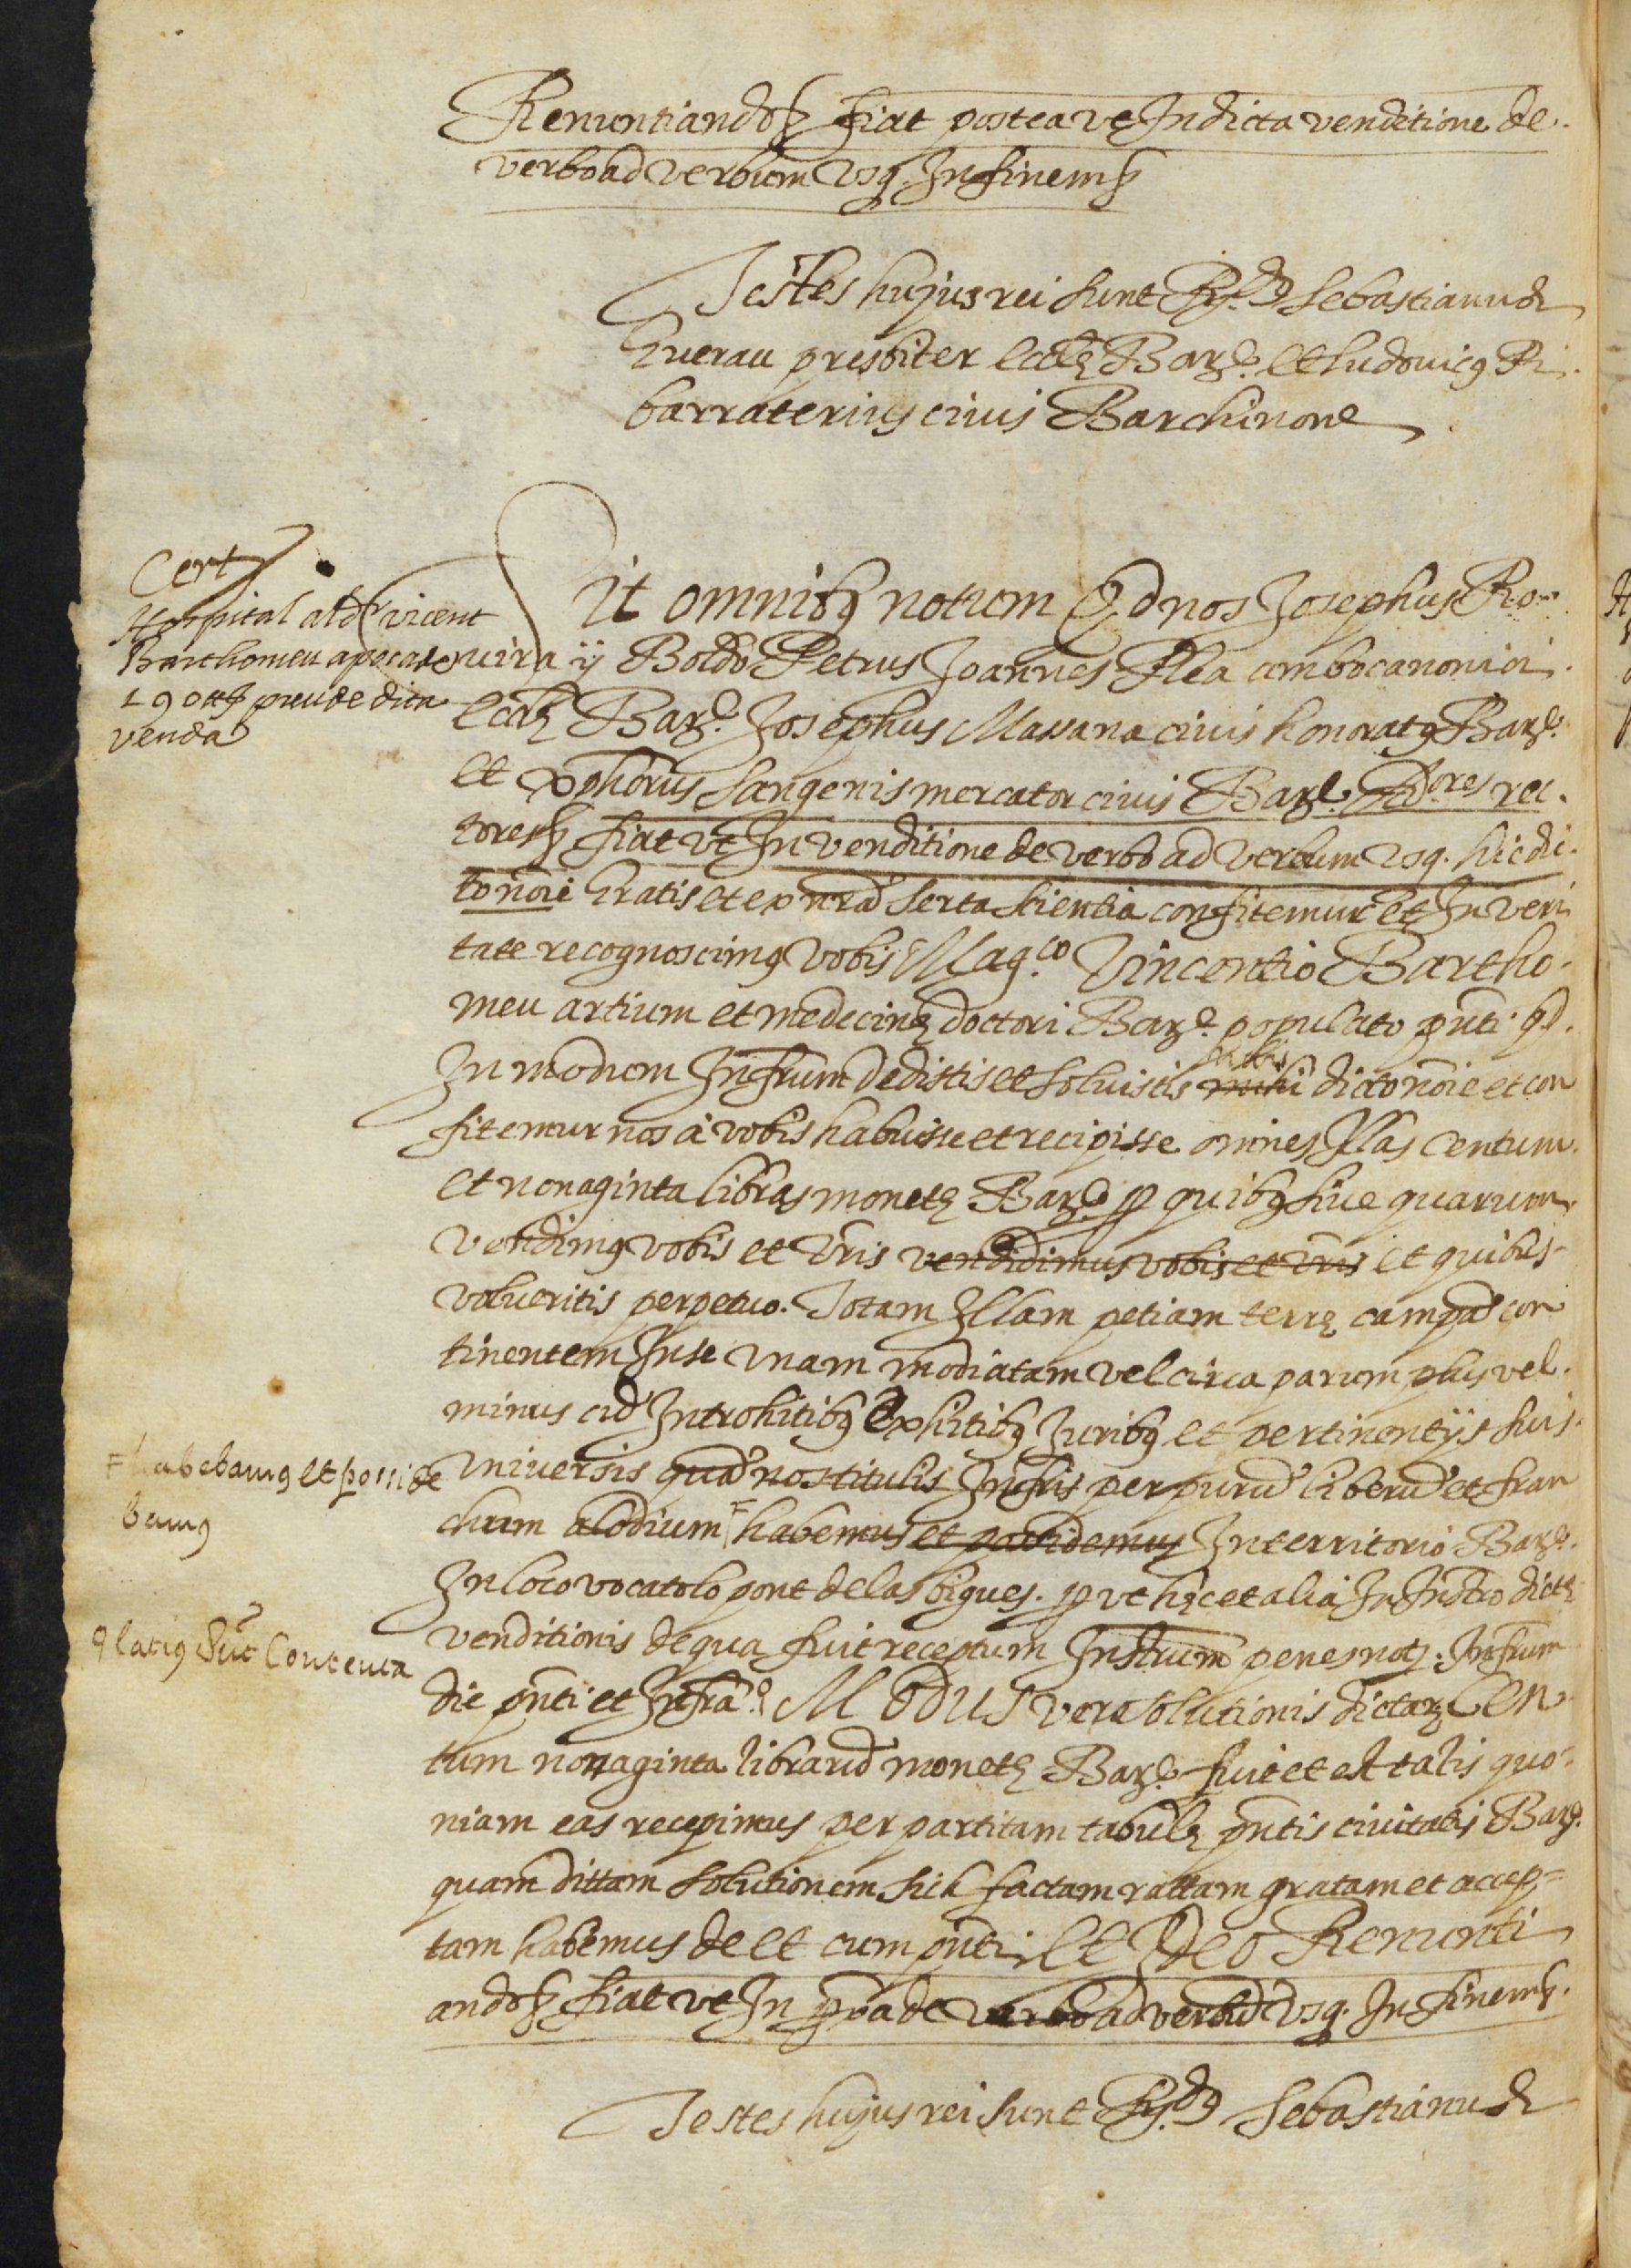 Renuntiando&c fiat postea vt In dicta venditione de
verbo ad verbum vsq. In finem&c
Testes hujus rei sunt R.dus Sebastianus
Guerau presbiter eccle Barne. et Ludovicus Ri
barraterius civis Barchinone
Sit omnibus notum Qd nos Josephus Ro
vira y Boldo Petrus Joannes Pla ambo canonici
eccle Barne. Josephus Massana civis honoratus Barne.
et xphorus Sangenis mercator civis Barne. Adores rec
tores&c fiat vt In venditione de verbo ad verbum vsq. hic dic
to noie Gratis et ex nra serta scientia confitemur et In veri
tate recognoscimus vobis Mag.co Vincentio Bartho
meu artium et medecine doctori Barne. populato pnti qd.
In modum Infrum dedistis et soluistis nobis mihi dicto noie et con
fitemur nos à vobis habuisse et recipisse omnes Illas centum
et nonaginta libras monete Barne. p quibus siue quarum
vendimus vobis et vris vendidimus vobis et vris et quibus
volueritis perpetuo. Totam Illam petiam terre campa con
tinentem In se vnam modiatam vel circa parum plus vel
minus cu Introhitibus exhitibus Juribus et pertinentijs suis
vniversis qua nos titulis Infris per puru liberu et fran
chum alodium habemus et possidemus In territorio Barne.
In loco vocato lo pont de las bigues. p vt hec et alia In Instro dicte
venditionis de qua fuit receptum Instrum penes not. Infrum
die pnti et Infra. MODUS vero solutionis dictar cen
tum nonaginta libraru monete Barne. fuit et est talis quo
niam eas recepimus per partitam tabule pntis civitatis Barne.
quam dittam solutionem sich factam rattam gratam et accep
tam habemus de et cum pnti. Et Ideo Renunti
ando&c fiat vt In pra de verbo ad verbu vsq. In finem&c.
Testes hujus rei sunt R.dus Sebastianus
Cert
Hospital al dr vicent
Barthomeu apoca de
190 ll preu de dita
venda
habebamus et posside
bamus
latius sut contenta